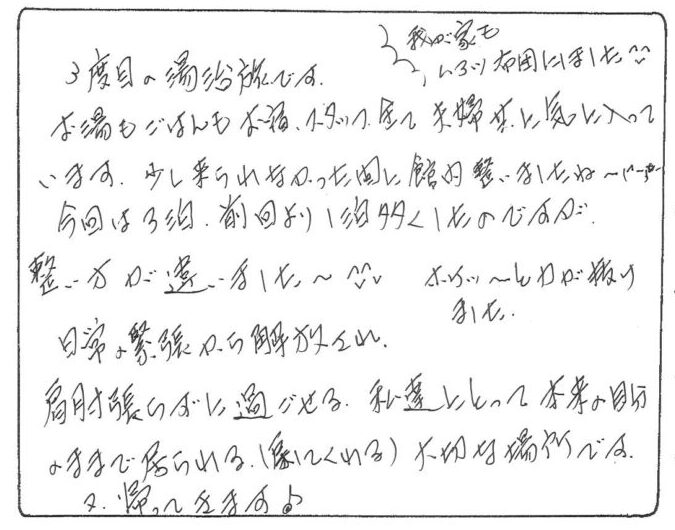 3度目の湯治旅です。
お湯もごはんもお宿、スタッフ全て夫婦共に気に入って
います。少し来られなかった間に館内整いましたね〜
我が家も
いろり布団にしました
今回は3泊、前回より1泊多くしたのですが、
整い方が違いました〜
ホゲッ〜と力が抜け
ました。
日常の緊張から解放され、
肩肘張らずに過ごせる、私達にとって本来の自分
のままで居られる、(戻してくれる)大切な場所です。
又、帰ってきます♪